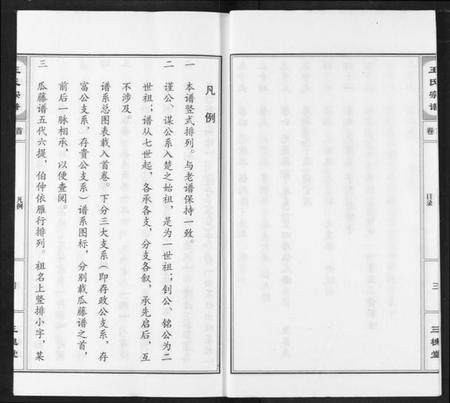 王氏宗谱
卷首
目录
三
三槐堂
凡例
一 本谱竖式排列。与老谱保持一致。
二 谨公、谋公系入楚之始祖，是为一世祖；钊公、铭公为二
世祖；谱从七世起，各承各支，分支各叙，承先启后，互
不涉及。
谱系总图表载入首卷。下分三大支系（即存政公支系，存
富公支系，存贵公支系）谱系图标，分别载瓜藤谱之首，
前后一脉相承，以便查阅。
三 瓜藤谱五代六提，伯仲依雁行排列。祖名上竖排小字，某
凡例